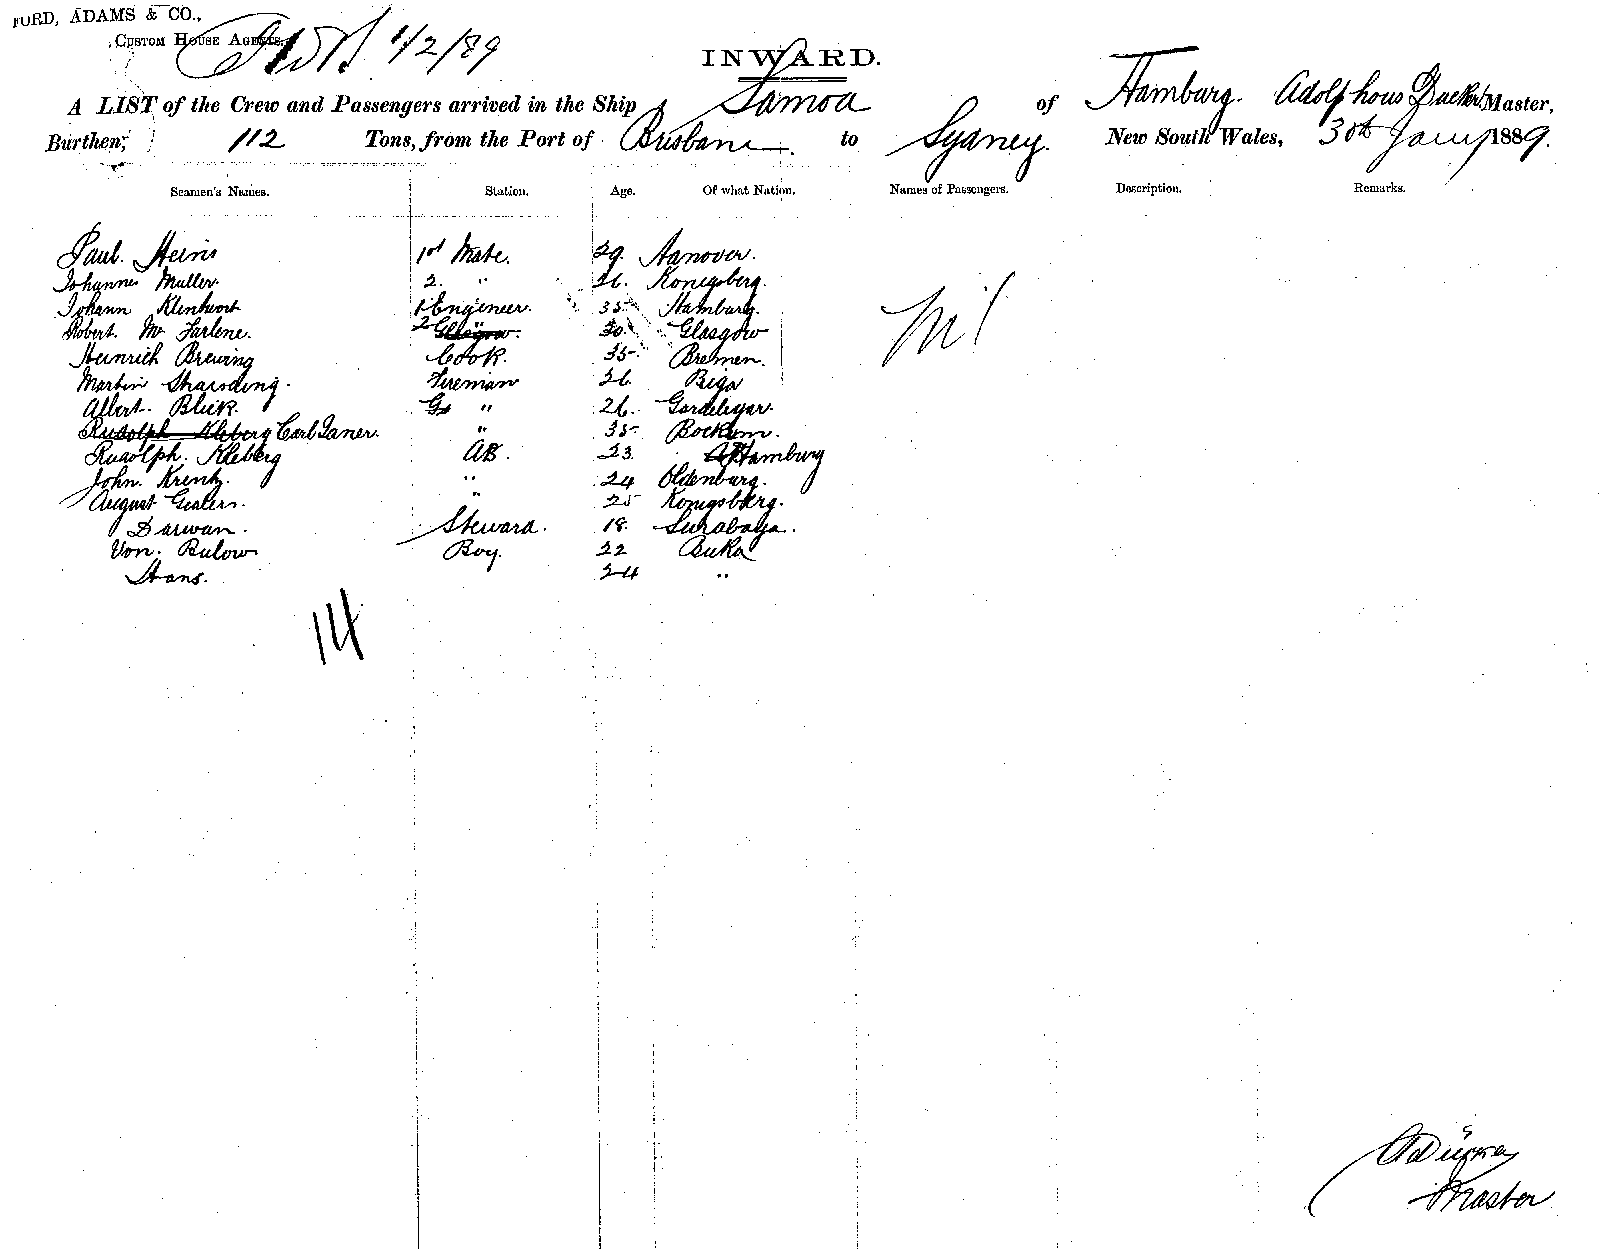 FORD, ADAMS & CO.,
CUSTOM HOUSE AGENTS. 1/2/89
INWARD.
A LIST of the Crew and Passengers arrived in the Ship Samoa of Hamburg. Adolphous Master,
Burthen, 112 Tons, from the Port of Brisbane to Sydney. New South Wales, 30th Jany 1889.
Seamen's Names. Station. Age. Of what Nation. Names of Passengers. Description. Remarks.
Paul. Heins 1st Mate. 29. Hanover.
Johannes Muller. 2. " 26. Konigsberg.
Johann Klenhwort 1 Engineer. 35 Hamburg. Nil
Robert. Mc Farlene. 2 Glasgow. 30. Glasgow
Heinrich Brewing Cook. 35. Bremen.
Martin Fireman 26. Riga
Albert. Blick. G " 26. Gardelegar.
Rudolph Kleberg Carl Janer. " 35 Bockum.
Rudolph. Kleberg AB. 23. Hamburg
John. Krentz. " 24 Oldenburg.
August " 25 Konigsberg.
Darwan. Steward. 18. Surabaya.
Von. Bulow Boy. 22 Buka
Hans. 24 "
14
Master